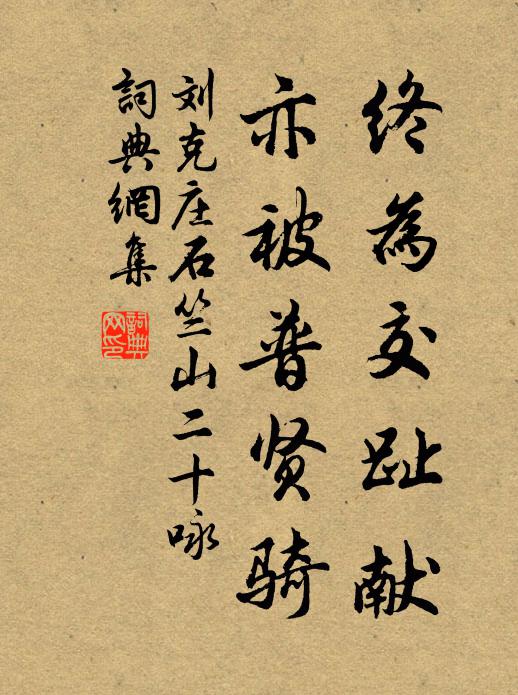 终為交趾献
亦被普贤骑
刘克庄石竺山二十咏
詞典網集
詞典
网印